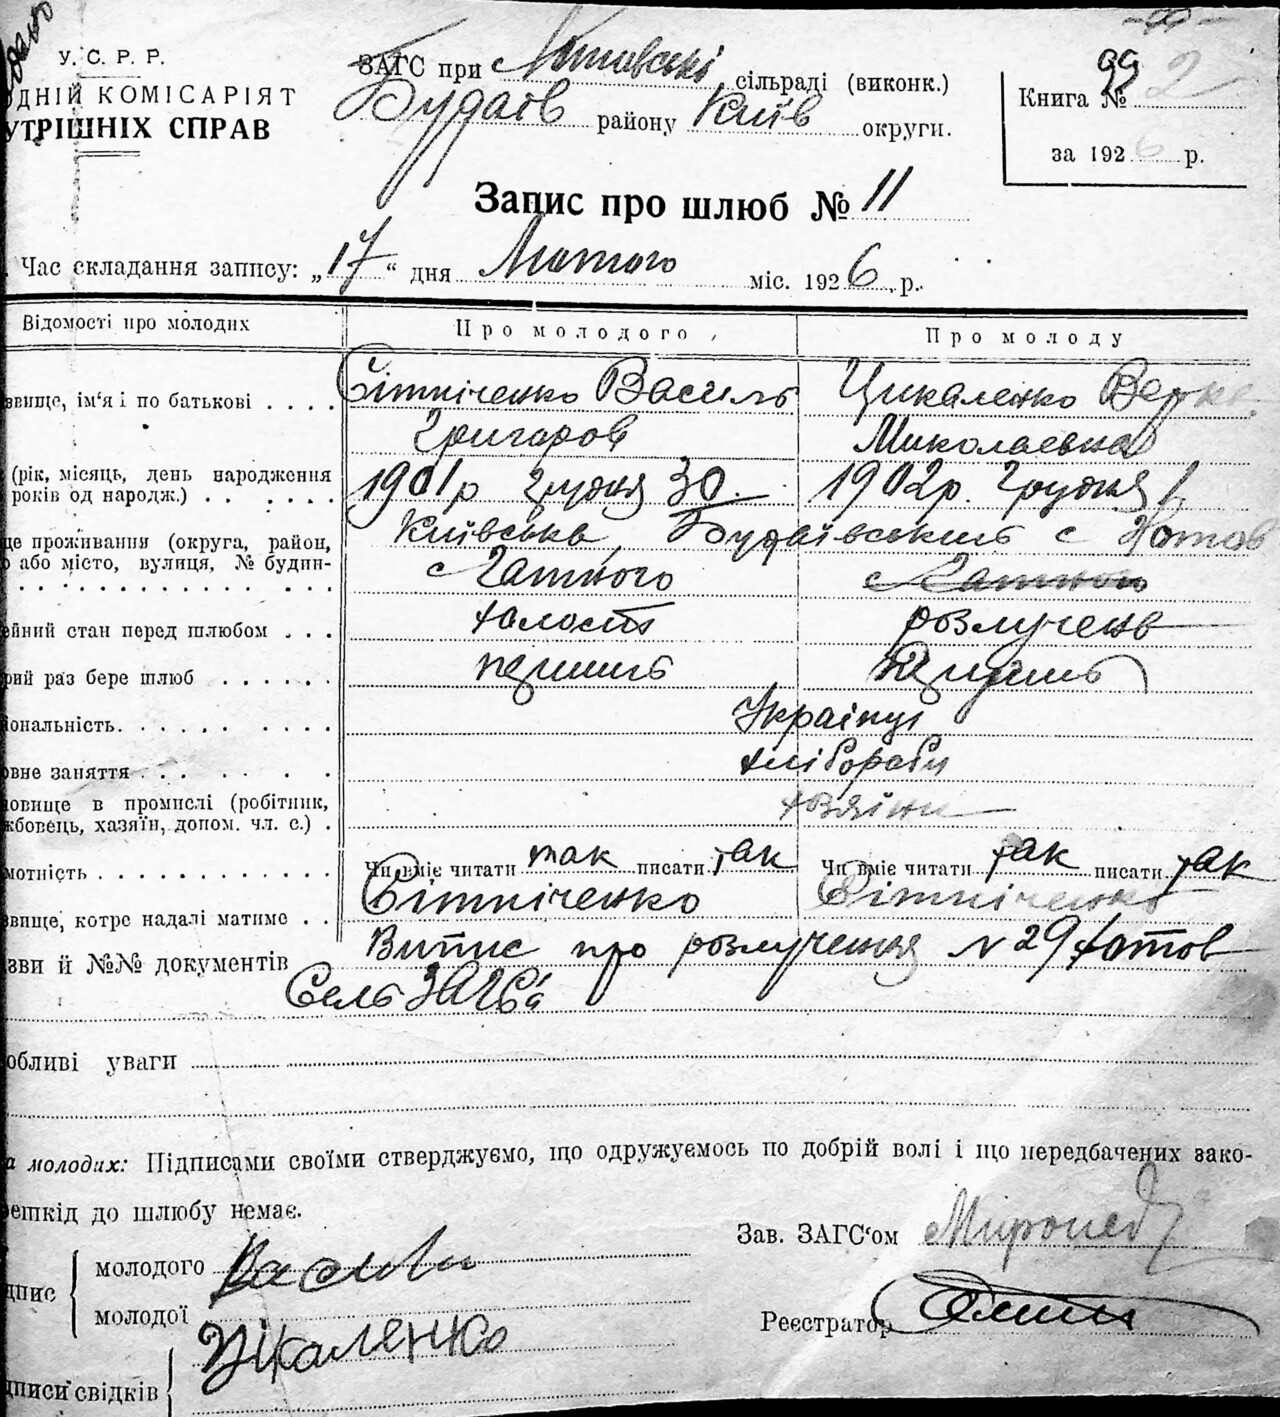 У. С. Р. Р.
ОДНІЙ КОМІСАРІЯТ
УТРІШНІХ СПРАВ
ЗАГС при Хотовські сільраді (виконк.)
Будаїв району Київ округи.
99
Книга № 2
за 1926 р.
Запис про шлюб № 11
Час складання запису: „17“ дня Лютого міс. 1926 р.
Відомості про молодих Про молодого Про молоду
звище, ім'я і по батькові . . . . Сітніченко Василь Цикаленко Верка
Григоров Миколаевна
(рік, місяць, день народження
років од народж.) . . . . . . 1901р грудня 30 1902р. Грудня 1
це проживання (округа, район, Київська, Будаївський с Хотов
о або місто, вулиця, № будин-
с Гатного с Гатного
ейний стан перед шлюбом . . . холости розлучена
рий раз бере шлюб . . . . . . перший
іональність. . . . . . . . . Українці
овне заняття . . . . . . . хлібороби
овище в промислі (робітник,
жбовець, хазяїн, допом. чл. с.) . хазяїни
мотність . . . . . . . . . . . Чи вміє читати так писати так Чи вміє читати так писати так
звище, котре надалі матиме . . Сітніченко Сітніченко
зви й №№ документів Випис про розлучення N 29 Хотов
Сель ЗАГС'а
обливі уваги
а молодих: Підписами своїми стверджуємо, що одружуємось по добрій волі і що передбачених зако-
ешкід до шлюбу немає.
Зав. ЗАГС'ом
дпис
молодого
молодої Цікаленко
Реєстратор
дписи свідків